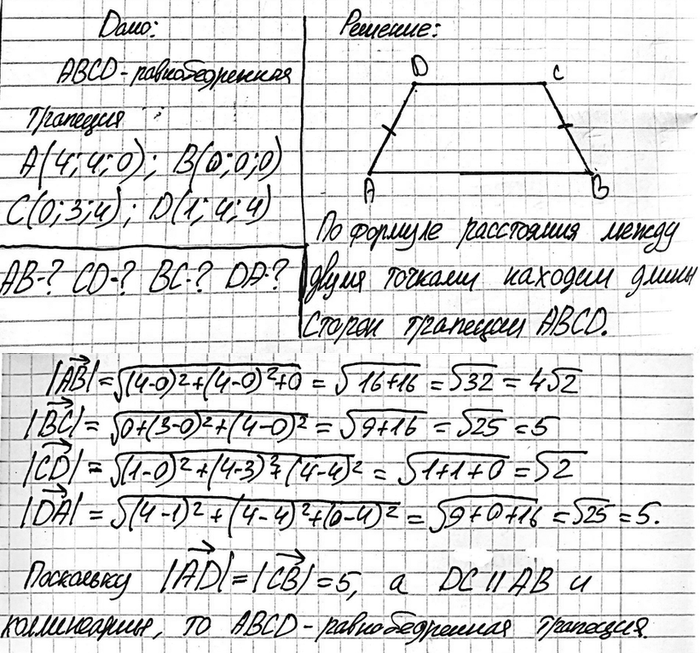 Дано:
ABCD - равнобедренная
трапеция
A(4; 4; 0); B(0; 0; 0)
C(0; 3; 4); D(1; 4; 4)
AB-? CD-? BC-? DA-?
Решение:
D C
A B
По формуле расстояния между
двумя точками находим длины
сторон трапеции ABCD.
|AB→| = √((4-0)²+(4-0)²+0) = √(16+16) = √32 = 4√2
|BC→| = √(0+(3-0)²+(4-0)²) = √(9+16) = √25 = 5
|CD→| = √((1-0)²+(4-3)²+(4-4)²) = √(1+1+0) = √2
|DA→| = √((4-1)²+(4-4)²+(0-4)²) = √(9+0+16) = √25 = 5.
Поскольку |AD→| = |CB→| = 5, а DC || AB и
коллинеарны, то ABCD - равнобедренная трапеция.